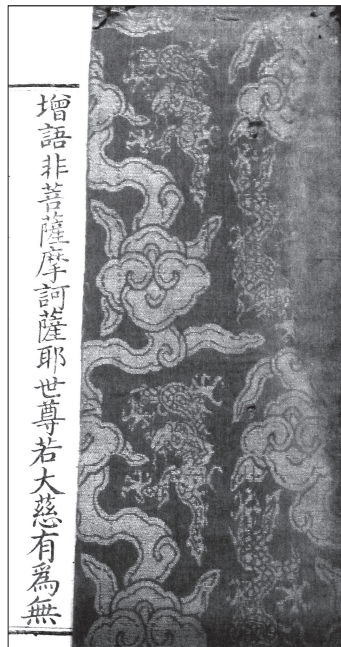 增語非菩薩摩訶薩耶世尊若大慈有爲無